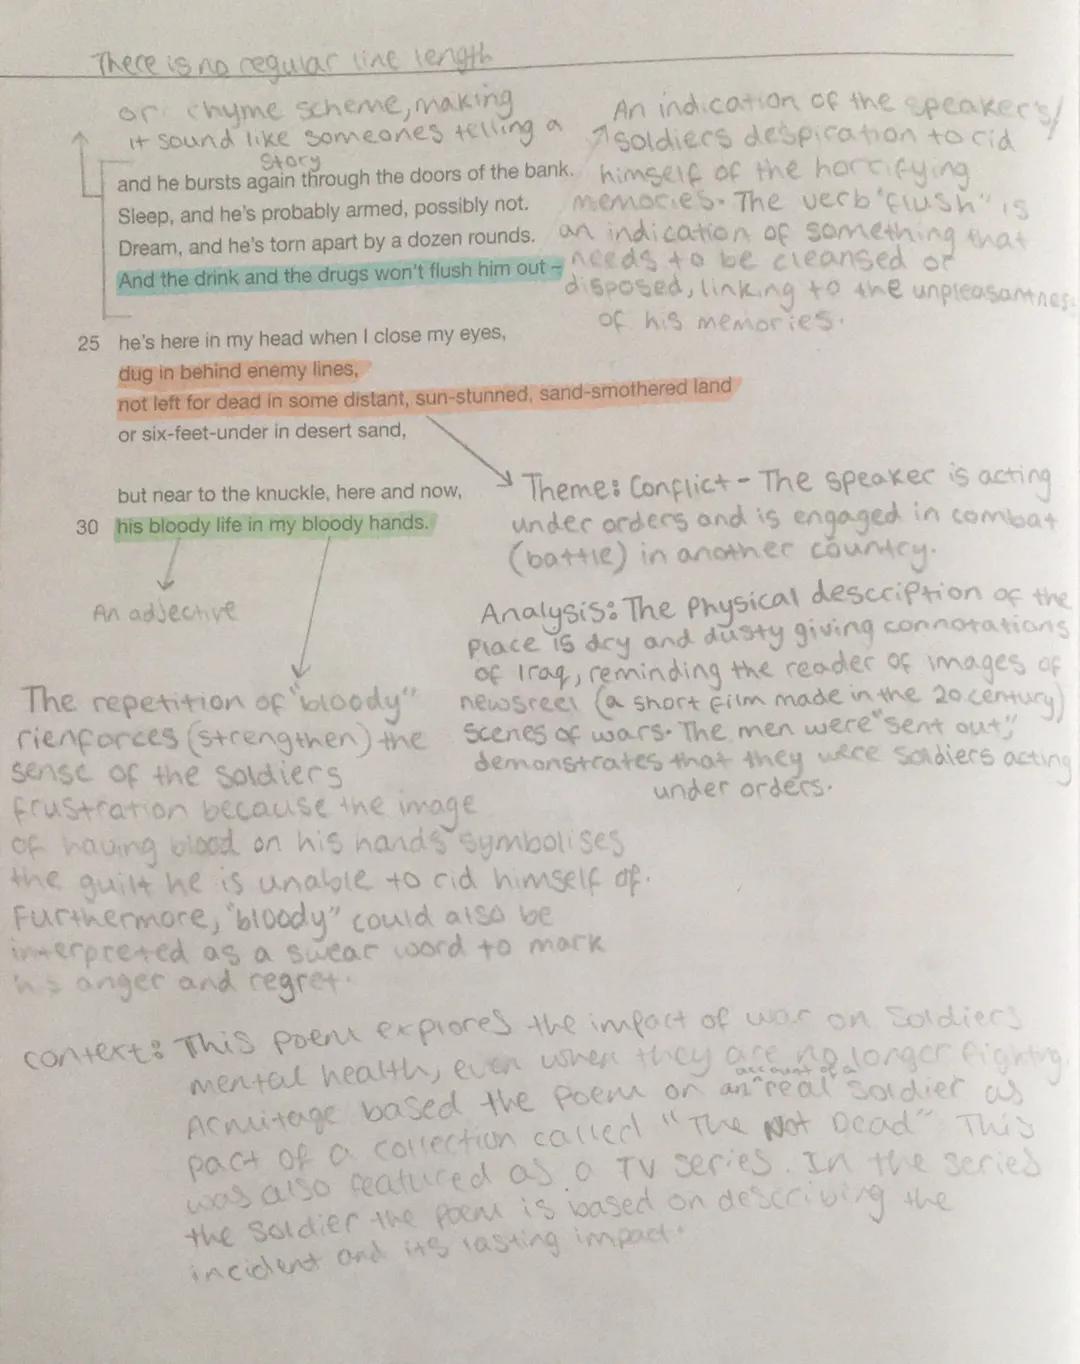 There is no regular line length
or rhyme scheme, making
it sound like someones telling a
story
An indication of the speaker's/
soldiers despiration to rid
himself of the horrifying
memories. The verb "flush" is
an indication of something that
needs to be cleansed or
disposed, linking to the unpleasantness
of his memories.
and he bursts again through the doors of the bank.
Sleep, and he's probably armed, possibly not.
Dream, and he's torn apart by a dozen rounds.
And the drink and the drugs won't flush him out –
25 he's here in my head when I close my eyes,
dug in behind enemy lines,
not left for dead in some distant, sun-stunned, sand-smothered land
or six-feet-under in desert sand,
but near to the knuckle, here and now,
30 his bloody life in my bloody hands.
Theme: Conflict - The speaker is acting
under orders and is engaged in combat
(battle) in another country.
An adjective
Analysis: The Physical description of the
place is dry and dusty giving connotations
of Iraq, reminding the reader of images of
newsreel (a short film made in the 20 century)
scenes of wars. The men were "sent out",
demonstrates that they were soldiers acting
under orders.
The repetition of "bloody"
rienforces (strengthen) the
sense of the soldiers
frustration because the image
of having blood on his hands symbolises
the guilt he is unable to rid himself of.
Furthermore, "bloody" could also be
interpreted as a swear word to mark
his anger and regret.
context: This poem explores the impact of war on soldiers
mental health, even when they are no longer fighting.
Armitage based the poem on an account of a real soldier as
part of a collection called "The Not Dead" This
was also featured as a TV series. In the series
the soldier the poem is based on describing the
incident and its lasting impact.